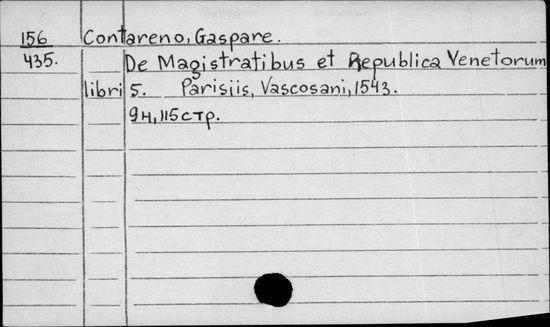 156 Contareno, Gaspare.
435. De Magistratibus et Republica Venetorum
libri 5. Parisiis, Vascosani, 1543.
9н, 115 стр.